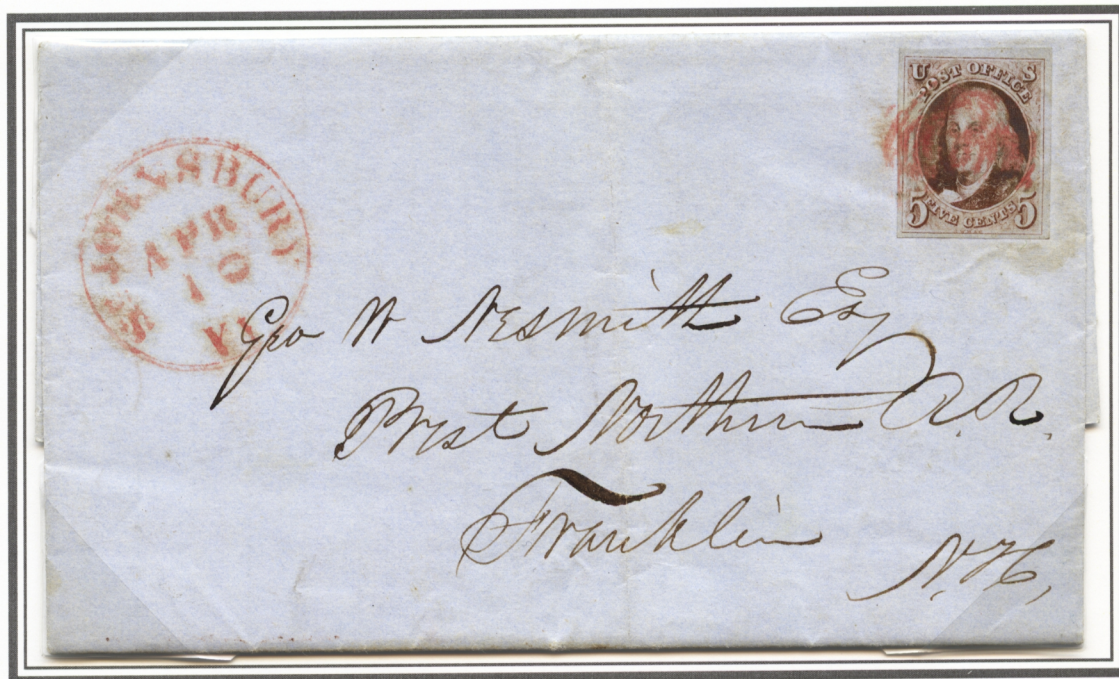 ST JOHNSBURY
APR
10
VT
U S
POST OFFICE
5 FIVE CENTS 5
Geo W Nesmith Esq
Prest Northern R.R.
Franklin
N.H,